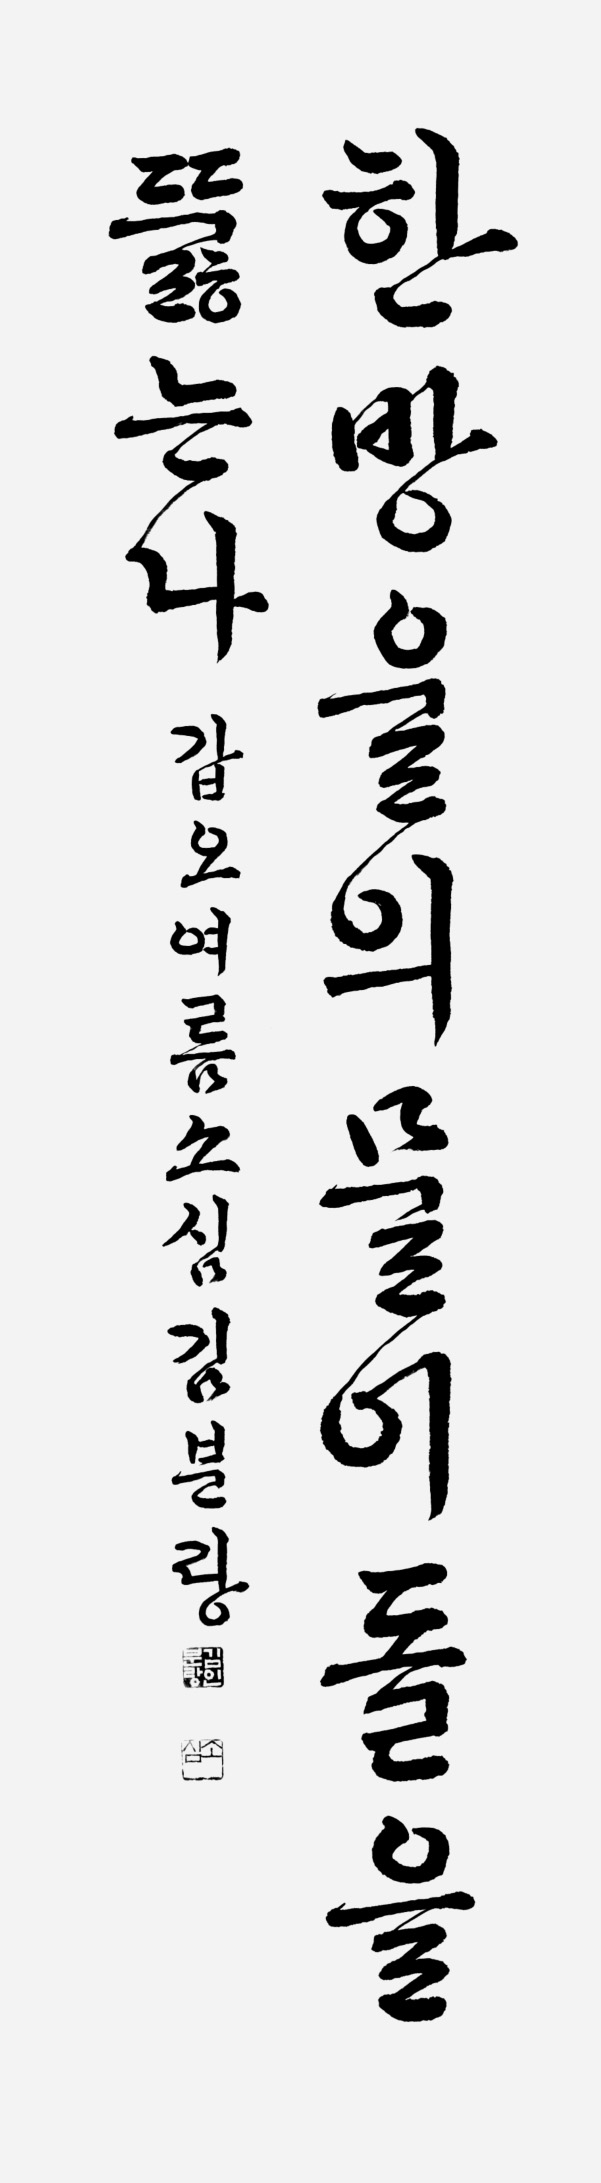 한방울의 물이 돌을
뚫는다 갑오여름 소심 김분랑
소심